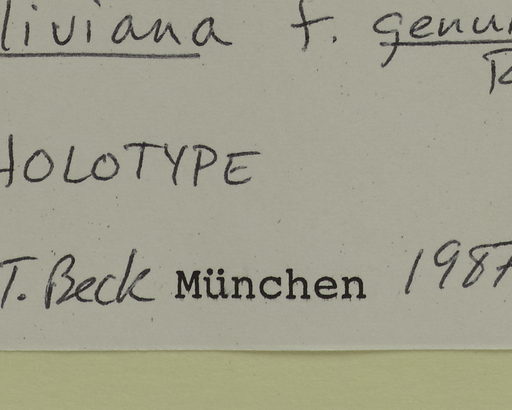 liviana f. genu
R
HOLOTYPE
T. Beck München 1987